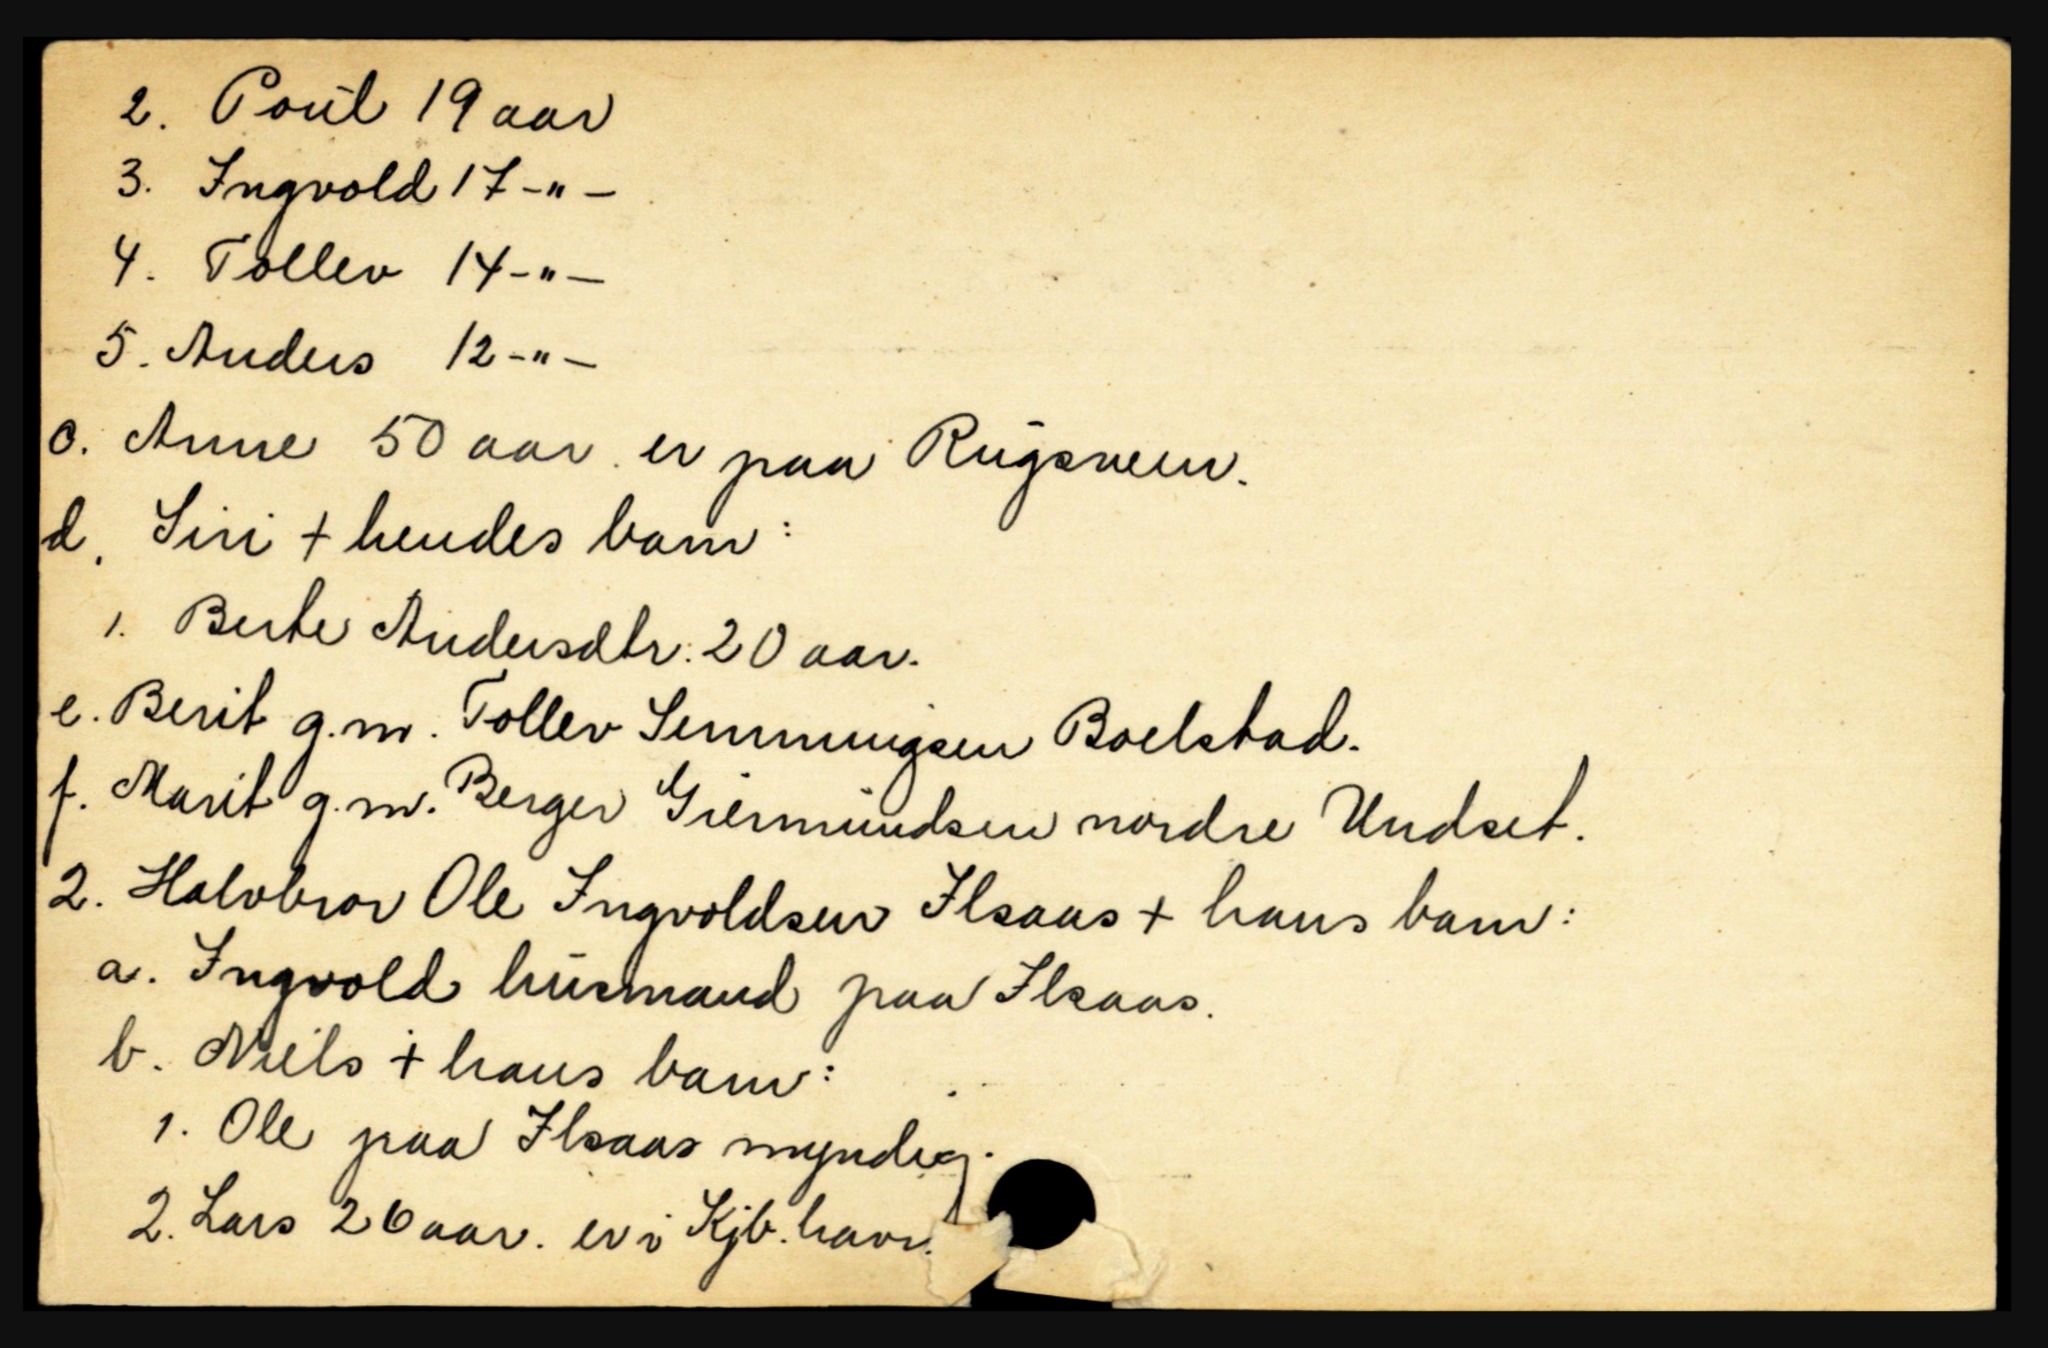 2. Poul 19 aar
3. Ingvold 17 -"-
4. Tollev 14 -"-
5. Anders 12 -"-
c. Anne 50 aar. er paa Rugsveen.
d. Siri + hendes barn:
1. Berte Andersdtr. 20 aar.
e. Berit g.m. Tollev Semmingsen Boelstad.
f. Marit g.m. Berger Giermundsen nordre Undset.
2. Halvbror Ole Ingvoldsen Ilsaas + hans barn:
a. Ingvold husmand paa Ilsaas.
b. Niels + hans barn:
1. Ole paa Ilsaas myndig.
2. Lars 26 aar. er i Kjb.havn.